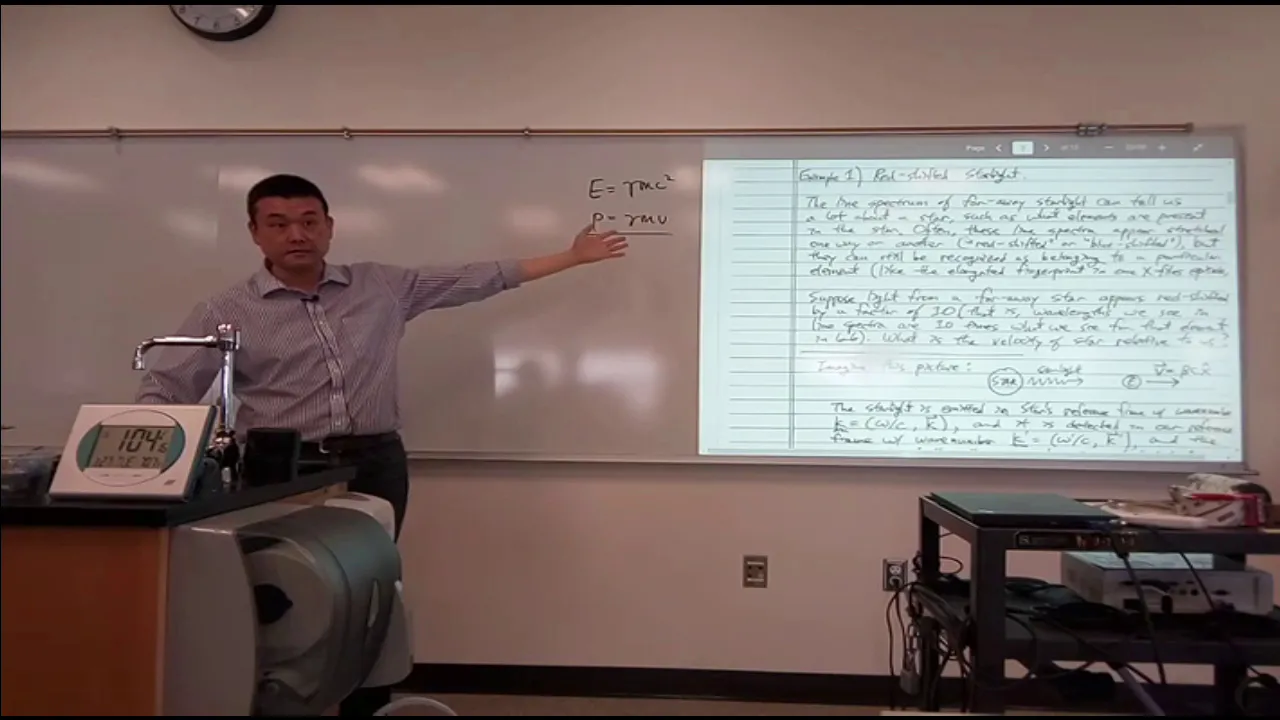 E = γmc²
P = γmv
Page 1 of 13
Example 1) Red-shifted Starlight.
The line spectrum of far-away starlight can tell us
a lot about a star, such as what elements are present
in the star. Often, these line spectra appear stretched
one way or another ("red-shifted" or "blue-shifted"), but
they can still be recognized as belonging to a particular
element (like the elongated fingerprint in one X-files episode
Suppose light from a far-away star appears red-shifted
by a factor of 10 (that is, wavelengths we see in
line spectra are 10 times what we see for that element
in lab). What is the velocity of star relative to us?
Imagine this picture:
starlight
Star
E
v⃗ = βc x̂
The starlight is emitted in star's reference frame w/ wavenumber
k = (ω/c, k⃗), and it is detected in our reference
frame w/ wavenumber k = (ω'/c, k⃗'), and the
104